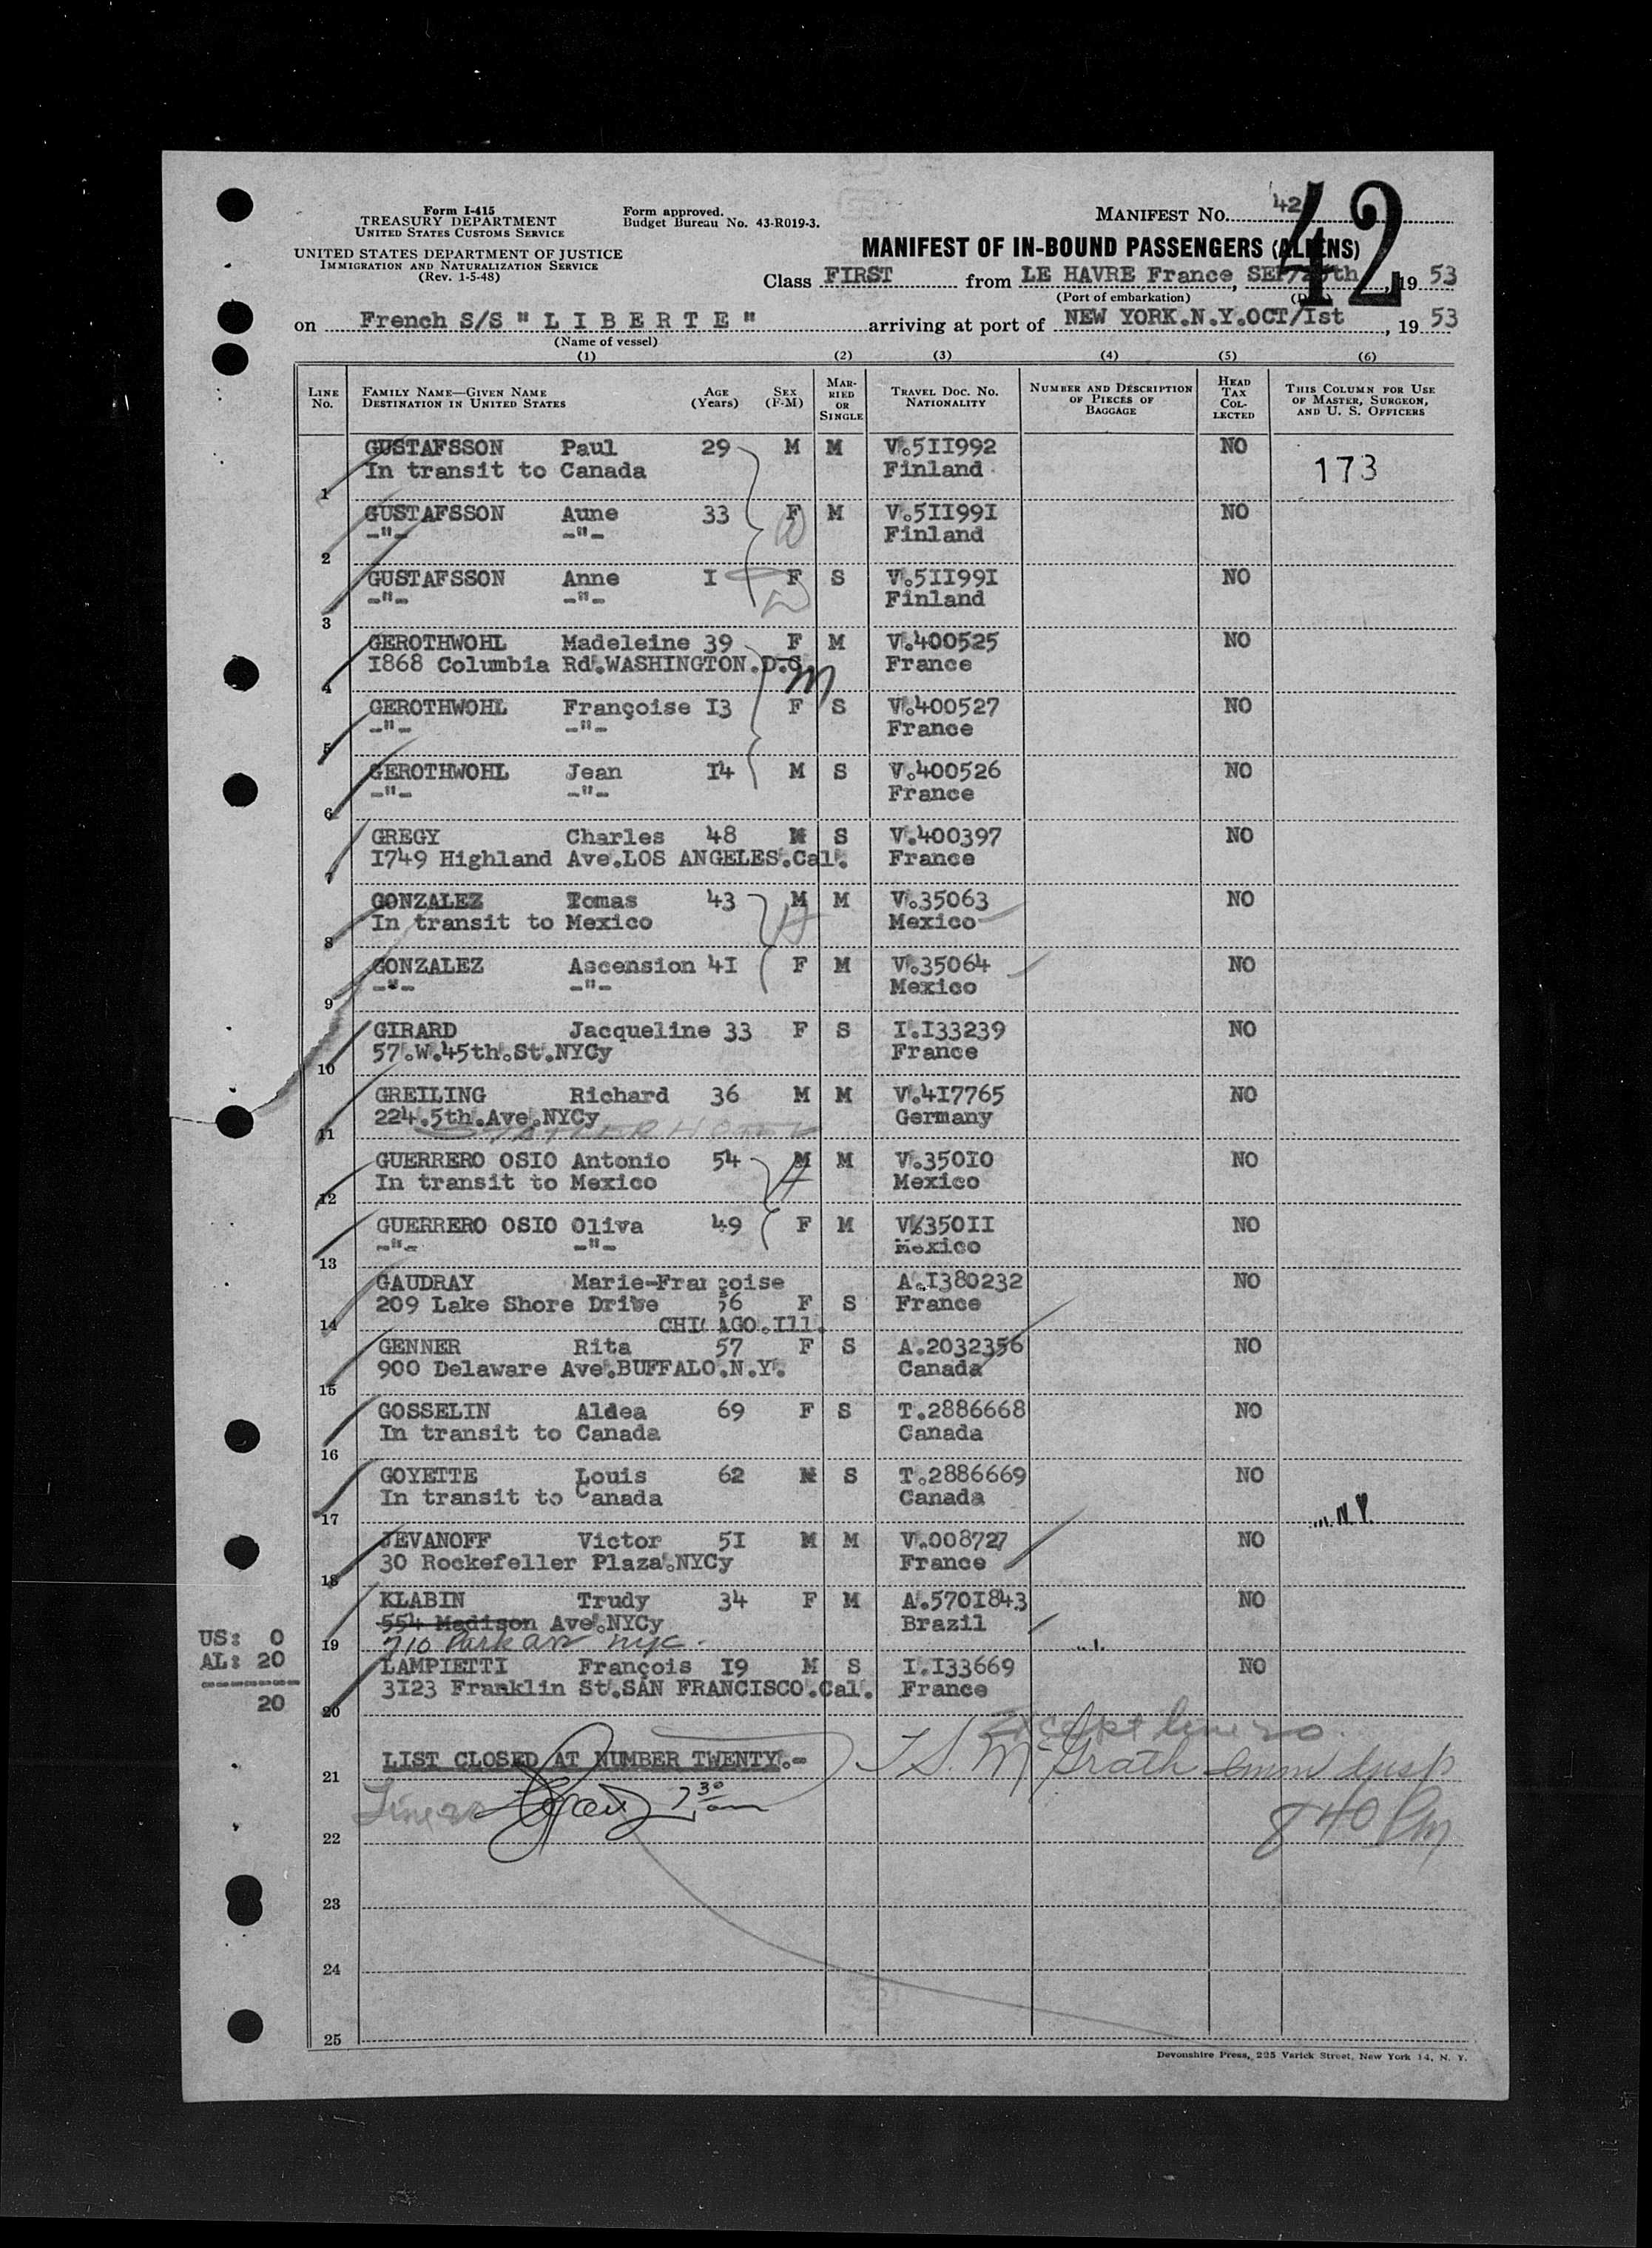 Form I-415
TREASURY DEPARTMENT
UNITED STATES CUSTOMS SERVICE
UNITED STATES DEPARTMENT OF JUSTICE
IMMIGRATION AND NATURALIZATION SERVICE
(Rev. 1-5-48)
Form approved.
Budget Bureau No. 43-R019-3.
MANIFEST NO. 42
42
MANIFEST OF IN-BOUND PASSENGERS (ALIENS)
Class FIRST from LE HAVRE France, , 19 53
(Port of embarkation)
on French S/S " L I B E R T E " arriving at port of NEW YORK.N.Y.OCT/Ist , 19 53
(Name of vessel)
(1) (2) (3) (4) (5) (6)
LINE No. FAMILY NAME—GIVEN NAME DESTINATION IN UNITED STATES AGE (Years) SEX (F-M) MARRIED OR SINGLE TRAVEL DOC. NO. NATIONALITY NUMBER AND DESCRIPTION OF PIECES OF BAGGAGE HEAD TAX COLLECTED THIS COLUMN FOR USE OF MASTER, SURGEON, AND U. S. OFFICERS
GUSTAFSSON Paul 29 M M V.5II992 NO
In transit to Canada Finland 173
1
GUSTAFSSON Aune 33 F M V.5II99I NO
-"- -"- Finland
2
GUSTAFSSON Anne I F S V.5II99I NO
-"- -"- Finland
3
GEROTHWOHL Madeleine 39 F M V.400525 NO
I868 Columbia Rd.WASHINGTON.D.C France
4
GEROTHWOHL Françoise I3 F S V.400527 NO
-"- -"- France
5
GEROTHWOHL Jean I4 M S V.400526 NO
-"- -"- France
6
GREGY Charles 48 M S V.400397 NO
I749 Highland Ave.LOS ANGELES.Cal. France
7
GONZALEZ Tomas 43 M M V.35063 NO
In transit to Mexico Mexico
8
GONZALEZ Ascension 4I F M V.35064 NO
-"- -"- Mexico
9
GIRARD Jacqueline 33 F S I.I33239 NO
57.W.45th.St.NYCy France
10
GREILING Richard 36 M M V.4I7765 NO
224.5th.Ave.NYCy Germany
STATLER HOTEL
11
GUERRERO OSIO Antonio 54 M M V.350I0 NO
In transit to Mexico Mexico
12
GUERRERO OSIO Oliva 49 F M V.350II NO
-"- -"- Mexico
13
GAUDRAY Marie-Françoise A.I380232 NO
209 Lake Shore Drive 36 F S France
14 CHICAGO.Ill.
GENNER Rita 57 F S A.2032356 NO
900 Delaware Ave.BUFFALO.N.Y. Canada
15
GOSSELIN Aldea 69 F S T.2886668 NO
In transit to Canada Canada
16
GOYETTE Louis 62 M S T.2886669 NO
In transit to Canada Canada
17 N.Y.
JEVANOFF Victor 5I M M V.008727 NO
30 Rockefeller Plaza.NYCy France
18
KLABIN Trudy 34 F M A.570I843 NO
554 Madison Ave.NYCy Brazil
US: 0
19 710 Park av nyc.
AL: 20
LAMPIETTI François I9 M S I.I33669 NO
3I23 Franklin St.SAN FRANCISCO.Cal. France
20
20 Except line 20
LIST CLOSED AT NUMBER TWENTY.-
T.S. McGrath Imm Insp
21
Line 20 7 30 am
8 40 Pm
22
23
24
25
Devonshire Press, 225 Varick Street, New York 14, N. Y.